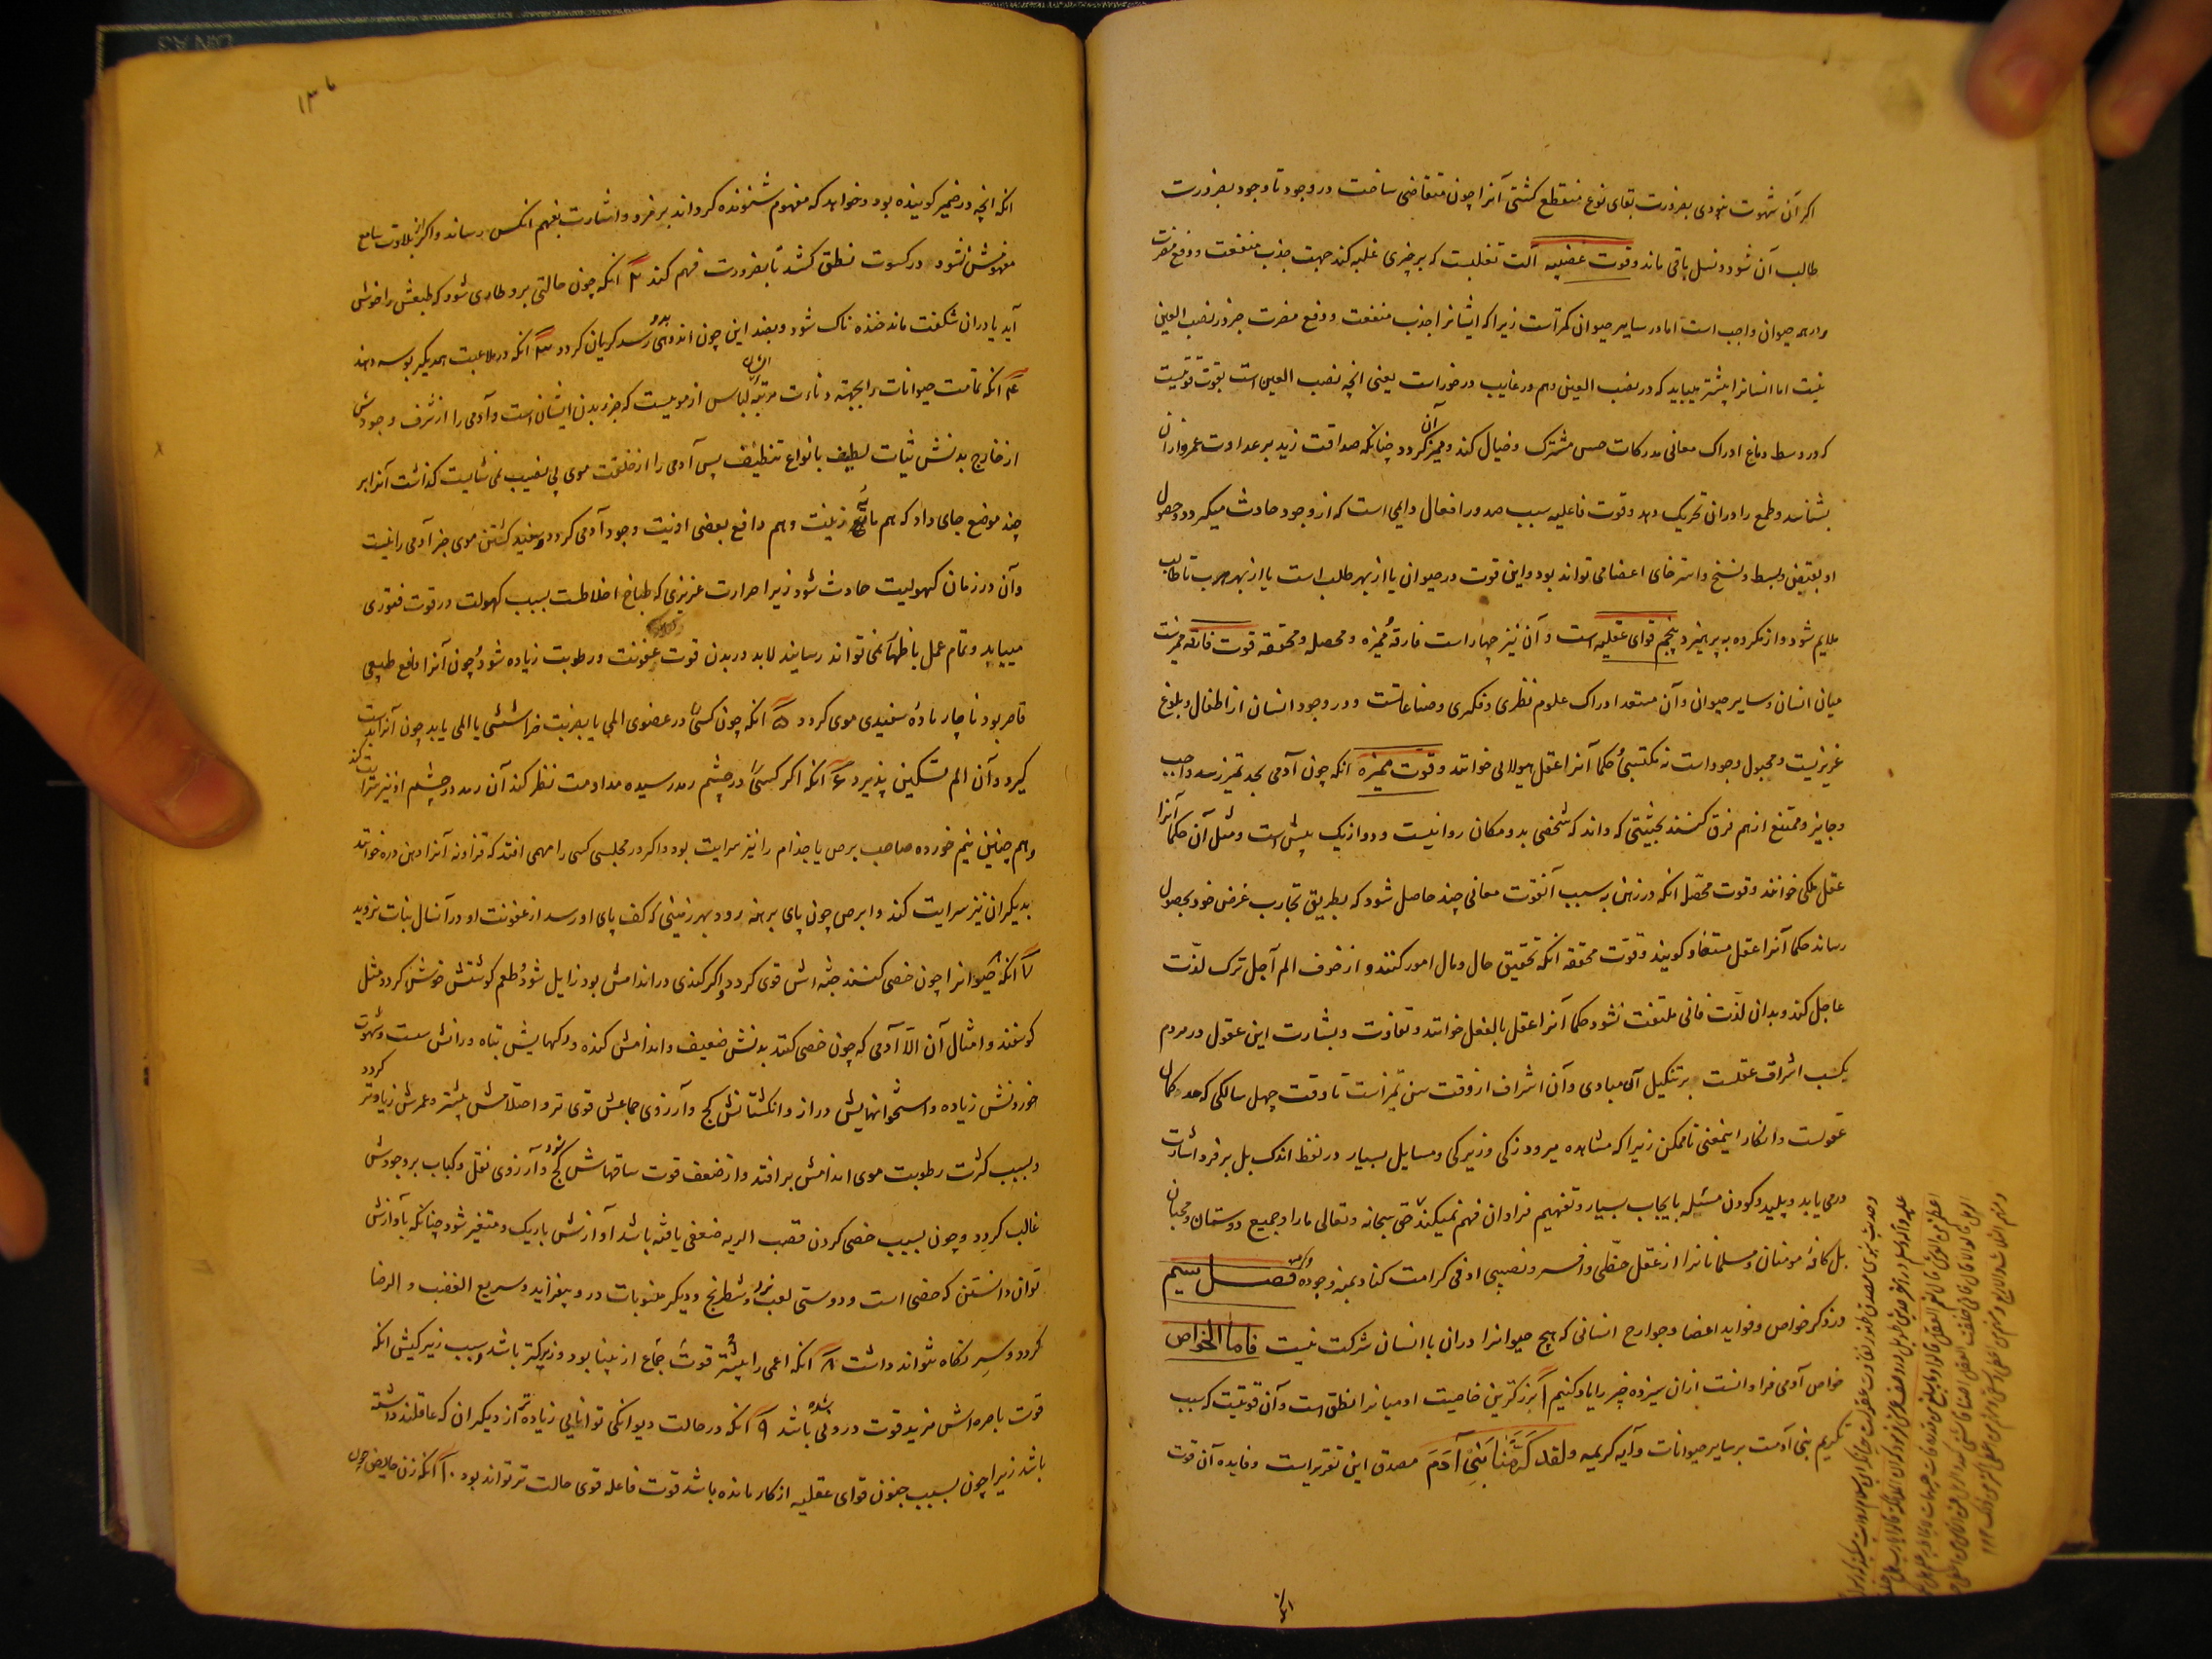 اگر آن شهوت نبودی بضرورت بقای نوع منقطع گشتی آنرا چون متقاضی ساخت در وجود تا وجود بضرورت
طالب آن شود و نسل باقی ماند و قوت غضبیه آلت تغلبست که بر چیزی غلبه کند جهت جذب منفعت و دفع مضرت
و در همه حیوان واجب است اما در سایر حیوان کمتر است زیرا که ایشانرا جذب منفعت و دفع مضرت جز در نصب العین
نیست اما انسانرا بیشتر میباید که در نصب العین و هم در غایب در خور است یعنی انچه نصب العین است بقوت
که در وسط دماغ ادراک معانی مدرکات حس مشترک و خیال کند و ممیز آن گردد چنانکه صداقت زید بر عداوت عمرو از آن
بشناسد و طمع را در ان تحریک دهد و قوت فاعلیه سبب صدور افعال دایمی است که از وجود حادث میگردد و حصول
او بقبض و بسط و تشنج و استرخای اعضا می تواند بود و این قوت در حیوان یا از بهر طلب است یا از بهر هرب تا طالب
ملایم شود و از مکروه به پرهیزد پنجم قوای عقلیه است و آن نیز چهار است فارقه و ممیزه و محصله و محققه قوت فارقه ممیزیست
میانی انسان و سایر حیوان و آن مستعد ادراک علوم نظری و فکری و صناعاتست و در وجود انسان از اطفال و بلوغ
غریزیست و مجبول وجود است نه مکتسبی حکما آنرا عقل هیولانی خوانند و قوت ممیزه انکه چون آدمی بحد تمیز رسد واجب
و جایز و ممتنع از هم فرق کنند بحیثیتی که داند که شخصی بدو مکان روا نیست و دو از یک بیش است و مثل آن حکما آنرا
عقل ملکی خوانند و قوت محصل انکه در ذهن به سبب آنقوت معانی چند حاصل شود که بطریق تجارب غرض خود بحصول
رساند حکما آنرا عقل مستفاد گویند و قوت محققه انکه تحقیق حال و مال امور کنند و از خوف الم آجل ترک لذت
عاجل کند و بدان لذت فانی ملتفت نشود حکما آنرا عقل بالفعل خوانند و تفاوت و بشارت این عقول در مردم
یکسب اشراف عقلست بر تکمیل آن مبادی و آن اشراف از وقت سن تمیز است تا وقت چهل سالگی که حد کمال
عقولست و انکار اینمعنی ناممکن زیرا که مشاهده میرود زکی و زیرکی و مسایل بسیار در لفظ اندک بل بر فرد اشارت
در می یابد و پلید و کودن مسئله بایجاب بسیار و تفهیم فراوان فهم نمیکند حق سبحانه و تعالی ما را و جمیع دوستان و محبان
بل کافه مومنان و مسلمانانرا از عقل حظی وافر و نصیبی اوفی کرامت کناد بمنه وجوده وکرمه فصل سیم
در ذکر خواص و فواید اعضا و جوارح انسانی که هیچ حیوانرا در ان با انسان شرکت نیست فاما الخواص
خواص آدمی فراوانست از ان سیزده چیز را یاد کنیم ۱ بزرگترین خاصیت ادمیانرا نطق است و آن قوتیست که سبب
تکریم بنی آدمست بر سایر حیوانات و آیه کریمه ولقد کرمنا بنی آدم مصدق این تقریر است و فایده آن قوت
انکه
۱۳۰
انکه انچه در ضمیر گوینده بود و خواهد که مفهوم شنونده گرداند برمز و اشارت بفهم انکس رساند و اگر از بلادت سامع
مفهومش نشود در کسوت نطق کشد تا بضرورت فهم کند ۲ انکه چون حالتی برو طاری شود که طبعش را خوش
آید یا در ان شگفت ماند خنده ناک شود و بضد این چون اندوهی بدو رسد گریان گردد ۳ انکه در ملاعبت همدیگر بوسه دهند
۴ انکه تمامت حیوانات را بجهة دناءت مرتبه ایشان لباس از مویست که جزو بدن ایشان است و آدمی را از شرف وجودش
از خارج بدنش ثیاب لطیف بانواع تنظیف پس آدمی را از خلقت موی بی نصیب نمی شایست گذاشت آنرا بر
چند موضع جای داد که هم مانع زینت و هم دافع بعضی اذیت وجود آدمی گردد و سفید گشتن موی جز آدمی را نیست
و آن در زمان کهولیت حادث شود زیرا حرارت غریزی که طباخ اخلاطست بسبب کهولت در قوت فتوری
مییابد و تمام عمل باظهار نمی تواند رسانید لابد در بدن قوت عفونت و رطوبت زیاده شود و چون آنرا دافع طبیعی
قاصر بود ناچار ماده سفیدی موی گردد ۵ انکه چون کسی در عضوی المی یا بضربت خراششی یا المی یابد چون آنرا بدست
گیرد و آن الم تسکین پذیرد ۶ انکه اگر کسی در چشم رمد رسیده مداومت نظر کند آن رمد در چشم او نیز سرایت کند
و هم چنین نیم خورده صاحب برص یا جذام را نیز سرایت بود و اگر در مجلسی کسی را مهمی افتد که قزاونه آنرا دهن دره خوانند
بدیگران نیز سرایت کند و ابرص چون پای برهنه رود بهر زمینی که کف پای او رسد از عفونت او در آنسال نبات نروید
۷ انکه حیوانرا چون خصی کنند جثه اش قوی گردد و اگر گندی در اندامش بود زایل شود و طعم گوشتش خوش گردد مثل
گوسفند و امثال آن الا آدمی که چون خصی کنند بدنش ضعیف و اندامش گنده و رگهایش تباه و رانش سست و شهوت
خوردنش زیاده و استخوانهایش دراز و انگشتانش کج و آرزوی جماعش قوی تر و احتلامش بیشتر و عمرش زیادتر گردد
و بسبب کثرت رطوبت موی اندامش بر افتد و از ضعف قوت ساقهاش کج شود و آرزوی نقل و کباب بر وجودش
غالب گردد و چون بسبب خصی کردن قصب الریه ضعفی یافته باشد آوازش باریک و متغیر شود چنانکه بآوازش
توان دانستن که خصی است و دوستی لعب نرد و شطرنج و دیگر منهیات درو بیفزاید و سریع الغضب و الرضا
گردد و سر نگاه نتواند داشت ۸ انکه اعمی را بیشتر قوت جماع از بینا بود و زیرکتر باشد و سبب زیرکیش انکه
قوت باصره اش مزید قوت درونی شده باشد ۹ انکه در حالت دیوانگی توانایی زیادة از دیگران که عاقلند داشته
باشد زیرا چون بسبب جنون قوای عقلیه از کار مانده باشد قوت فاعله قوی حالت تر تواند بود ۱۰ انکه زن حایض چون